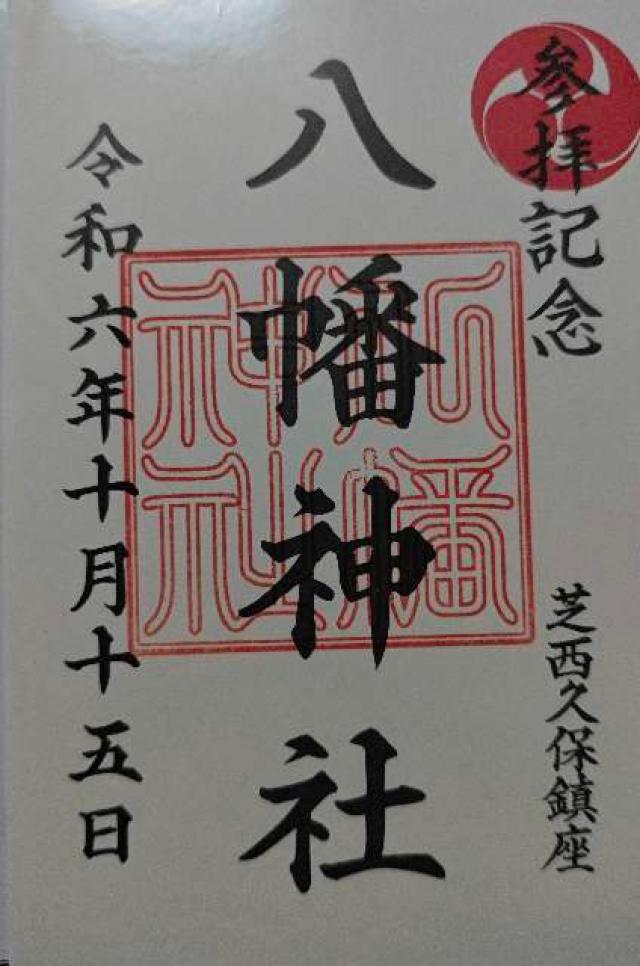 参拝記念
芝西久保鎮座
八幡神社
八幡神社
令和六年十月十五日